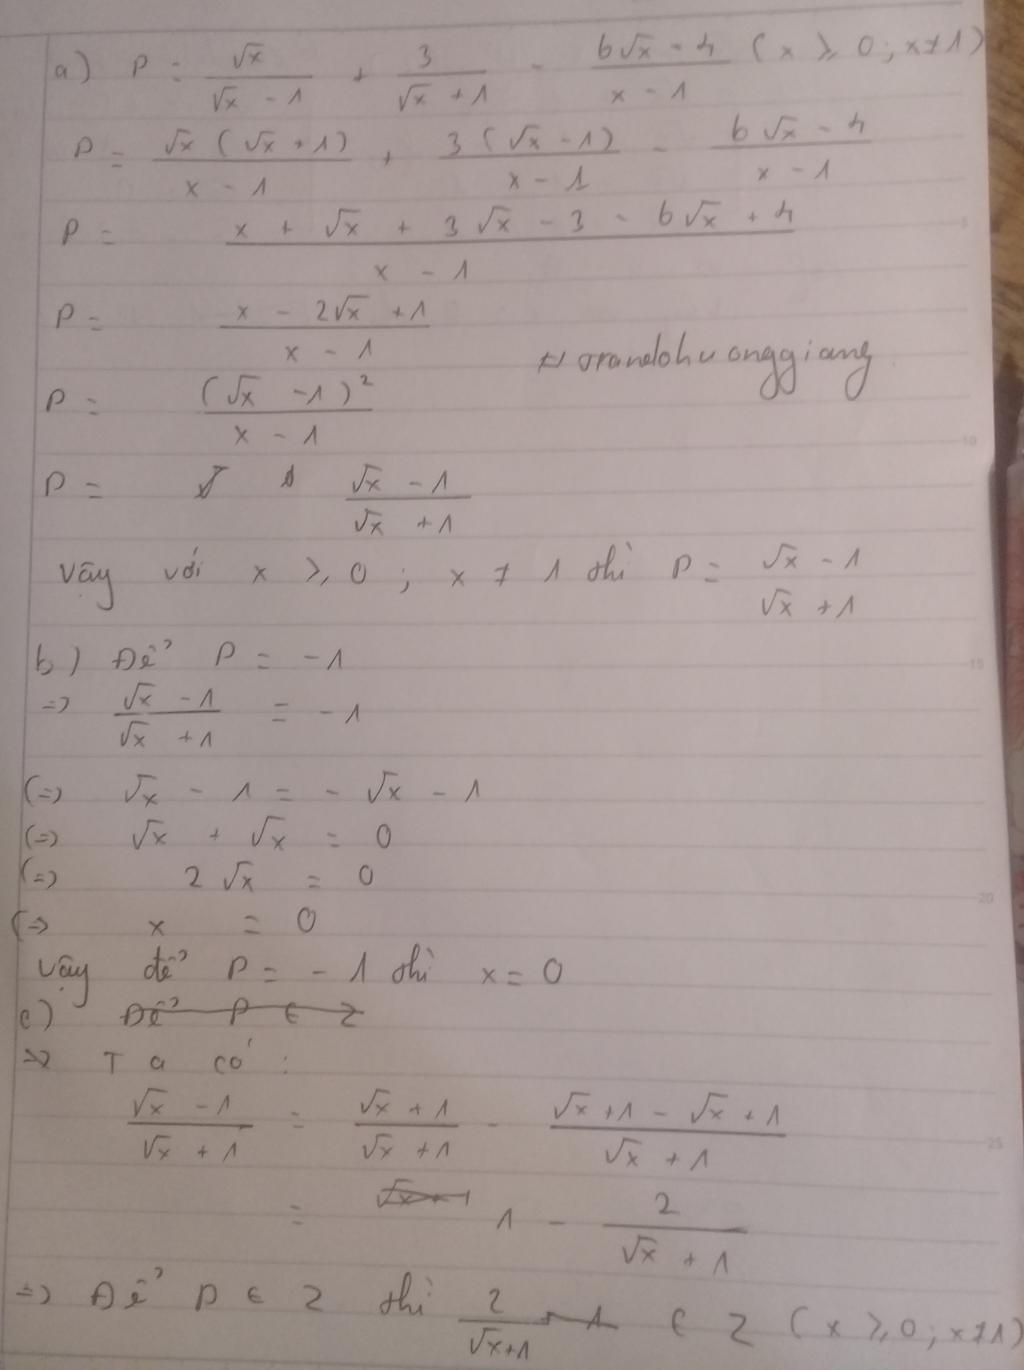 a) P = √x / (√x - 1) + 3 / (√x + 1) - (6√x - 4) / (x - 1) (x ≥ 0; x ≠ 1)
P = √x (√x + 1) / (x - 1) + 3 (√x - 1) / (x - 1) - (6√x - 4) / (x - 1)
P = (x + √x + 3√x - 3 - 6√x + 4) / (x - 1)
P = (x - 2√x + 1) / (x - 1)
P = (√x - 1)² / (x - 1)
P = (√x - 1) / (√x + 1)
Vậy với x ≥ 0; x ≠ 1 thì P = (√x - 1) / (√x + 1)
b) Để P = -1
=> (√x - 1) / (√x + 1) = -1
(=) √x - 1 = - √x - 1
(=) √x + √x = 0
(=) 2√x = 0
(=> x = 0
Vậy để P = - 1 thì x = 0
c) Để P ∈ Z
=> Ta có:
(√x - 1) / (√x + 1) = (√x + 1) / (√x + 1) - (√x + 1 - √x + 1) / (√x + 1)
= 1 - 2 / (√x + 1)
=> Để P ∈ Z thì 2 / (√x + 1) ∈ Z (x ≥ 0; x ≠ 1)